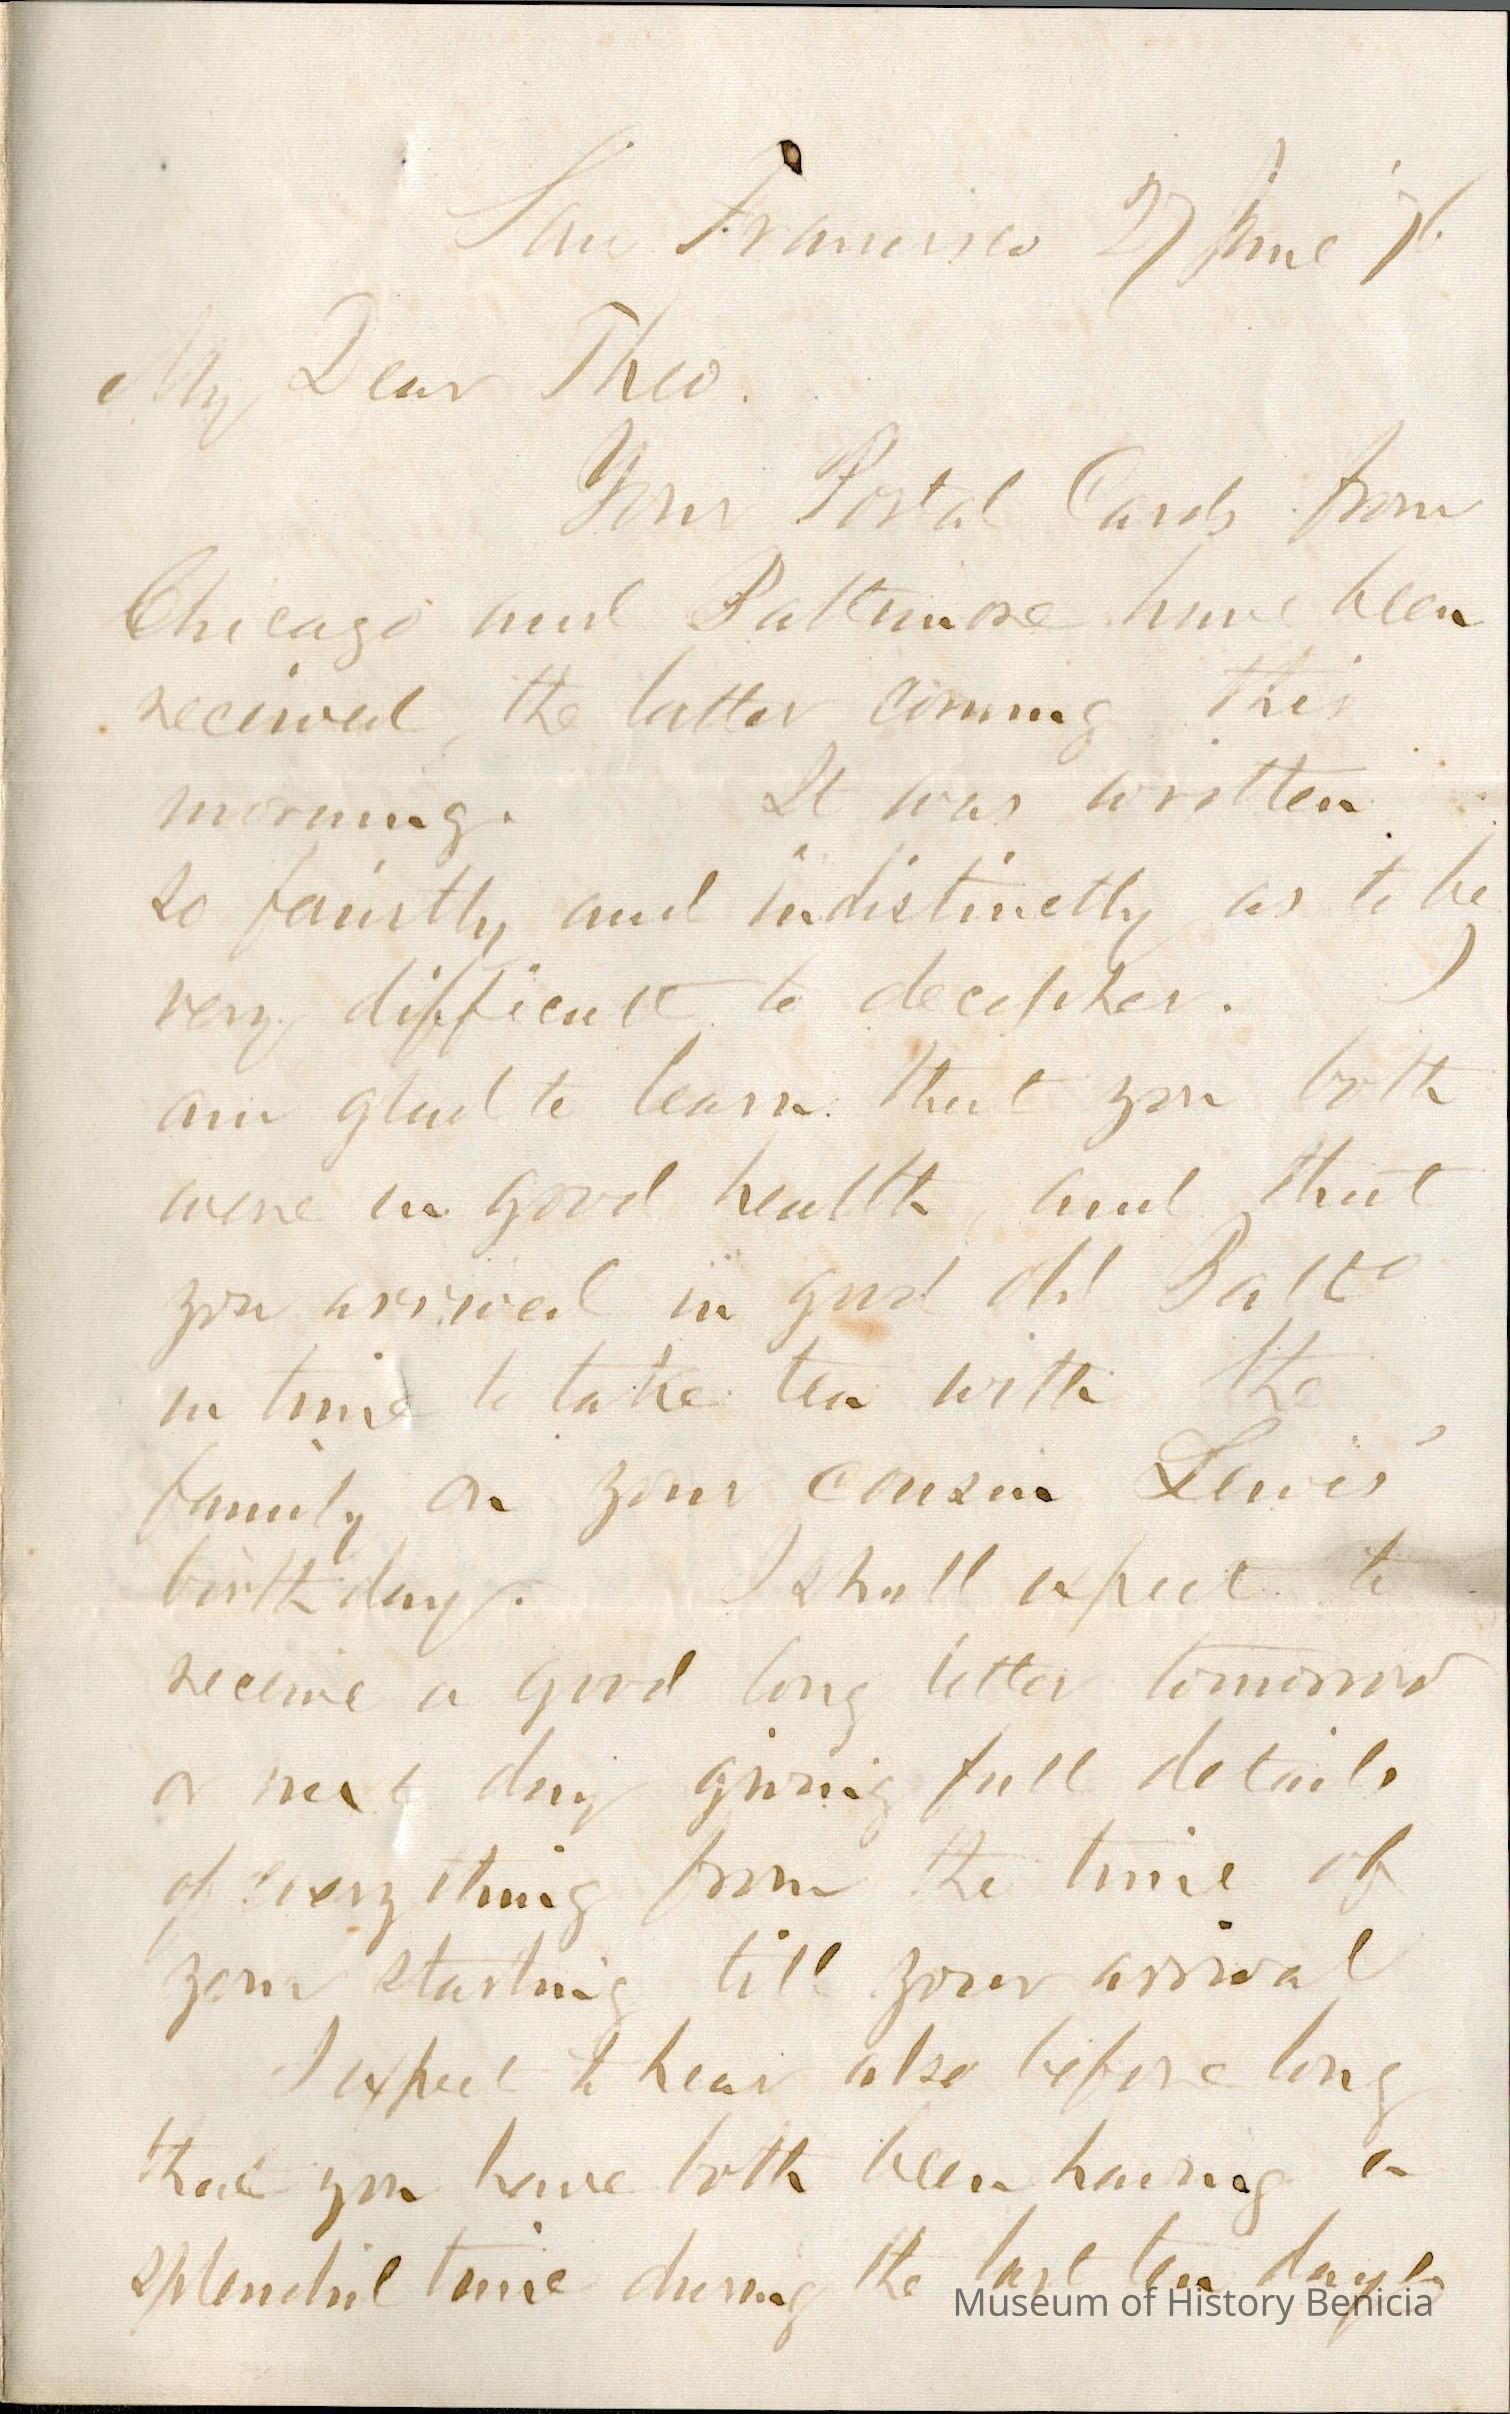 San Francisco 27 June '76
My Dear Theo.
Your Postal Cards from
Chicago and Baltimore have been
received, the latter coming this
morning. It was written
so faintly and indistinctly as to be
very difficult to decipher. I
am glad to learn that you both
were in good health, and that
you arrived in good old Balto
in time to take tea with the
family on your cousin Lewis'
birthday. I shall expect to
receive a good long letter tomorrow
or next day giving full details
of everything from the time of
your starting till your arrival
I expect to hear also before long
that you have both been having a
splendid time during the last ten days
Museum of History Benicia